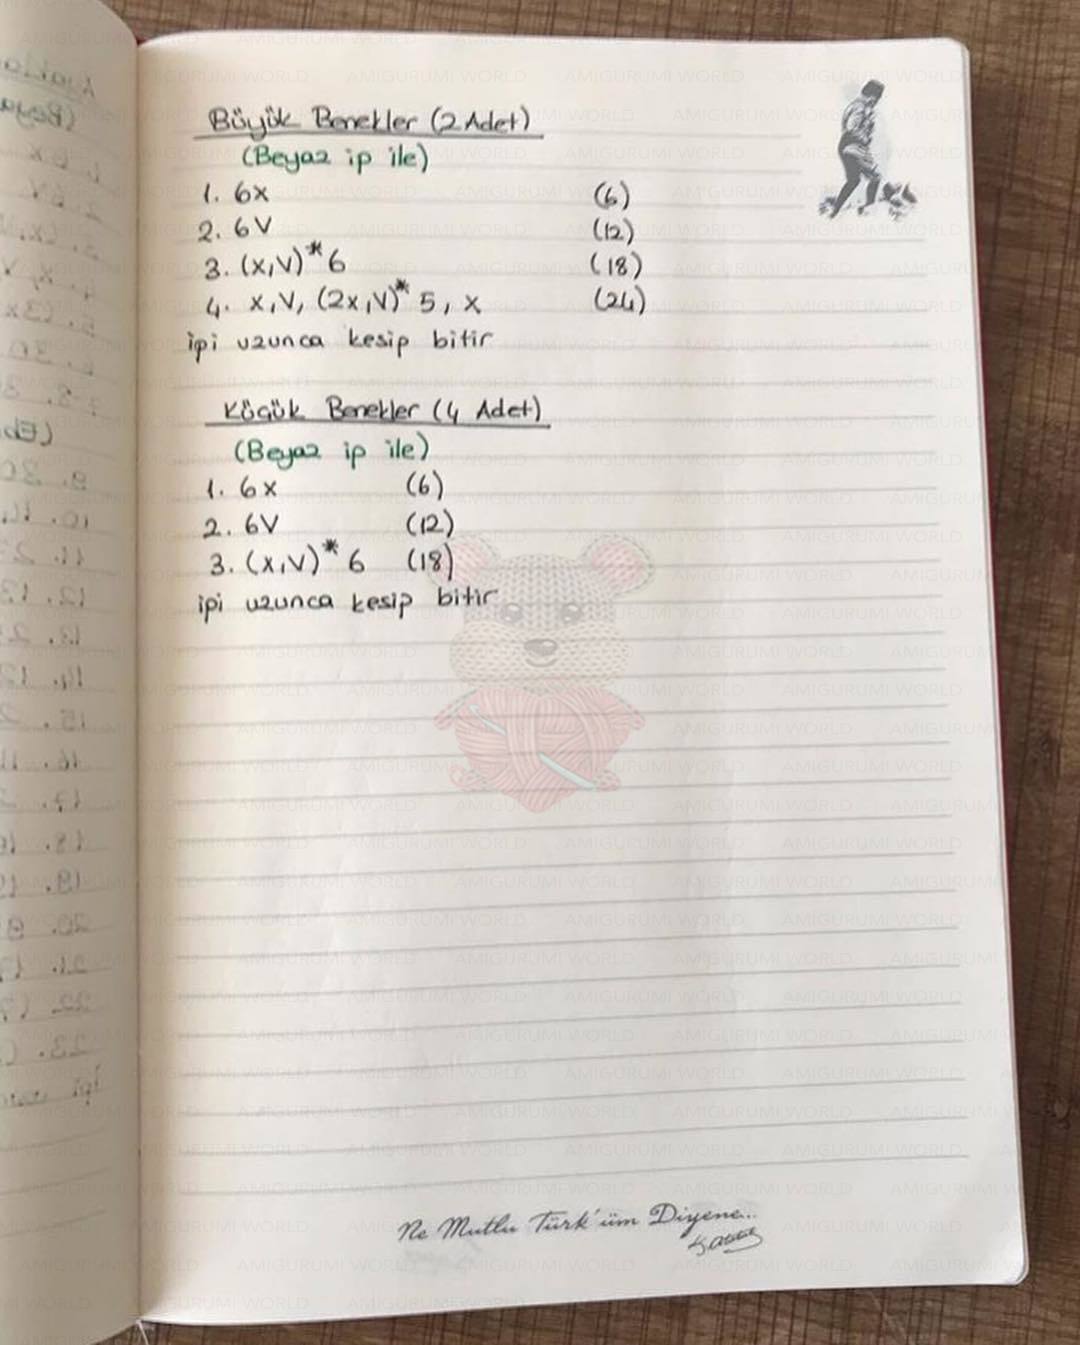 Büyük Benekler (2 Adet)
(Beyaz ip ile)
1. 6x (6)
2. 6V (12)
3. (x,V)* 6 (18)
4. x,V, (2x,V)* 5, x (24)
ipi uzunca kesip bitir
Küçük Benekler (4 Adet)
(Beyaz ip ile)
1. 6x (6)
2. 6V (12)
3. (x,V)* 6 (18)
ipi uzunca kesip bitir
Ne Mutlu Türk'üm Diyene...
AMIGURUMI WORLD